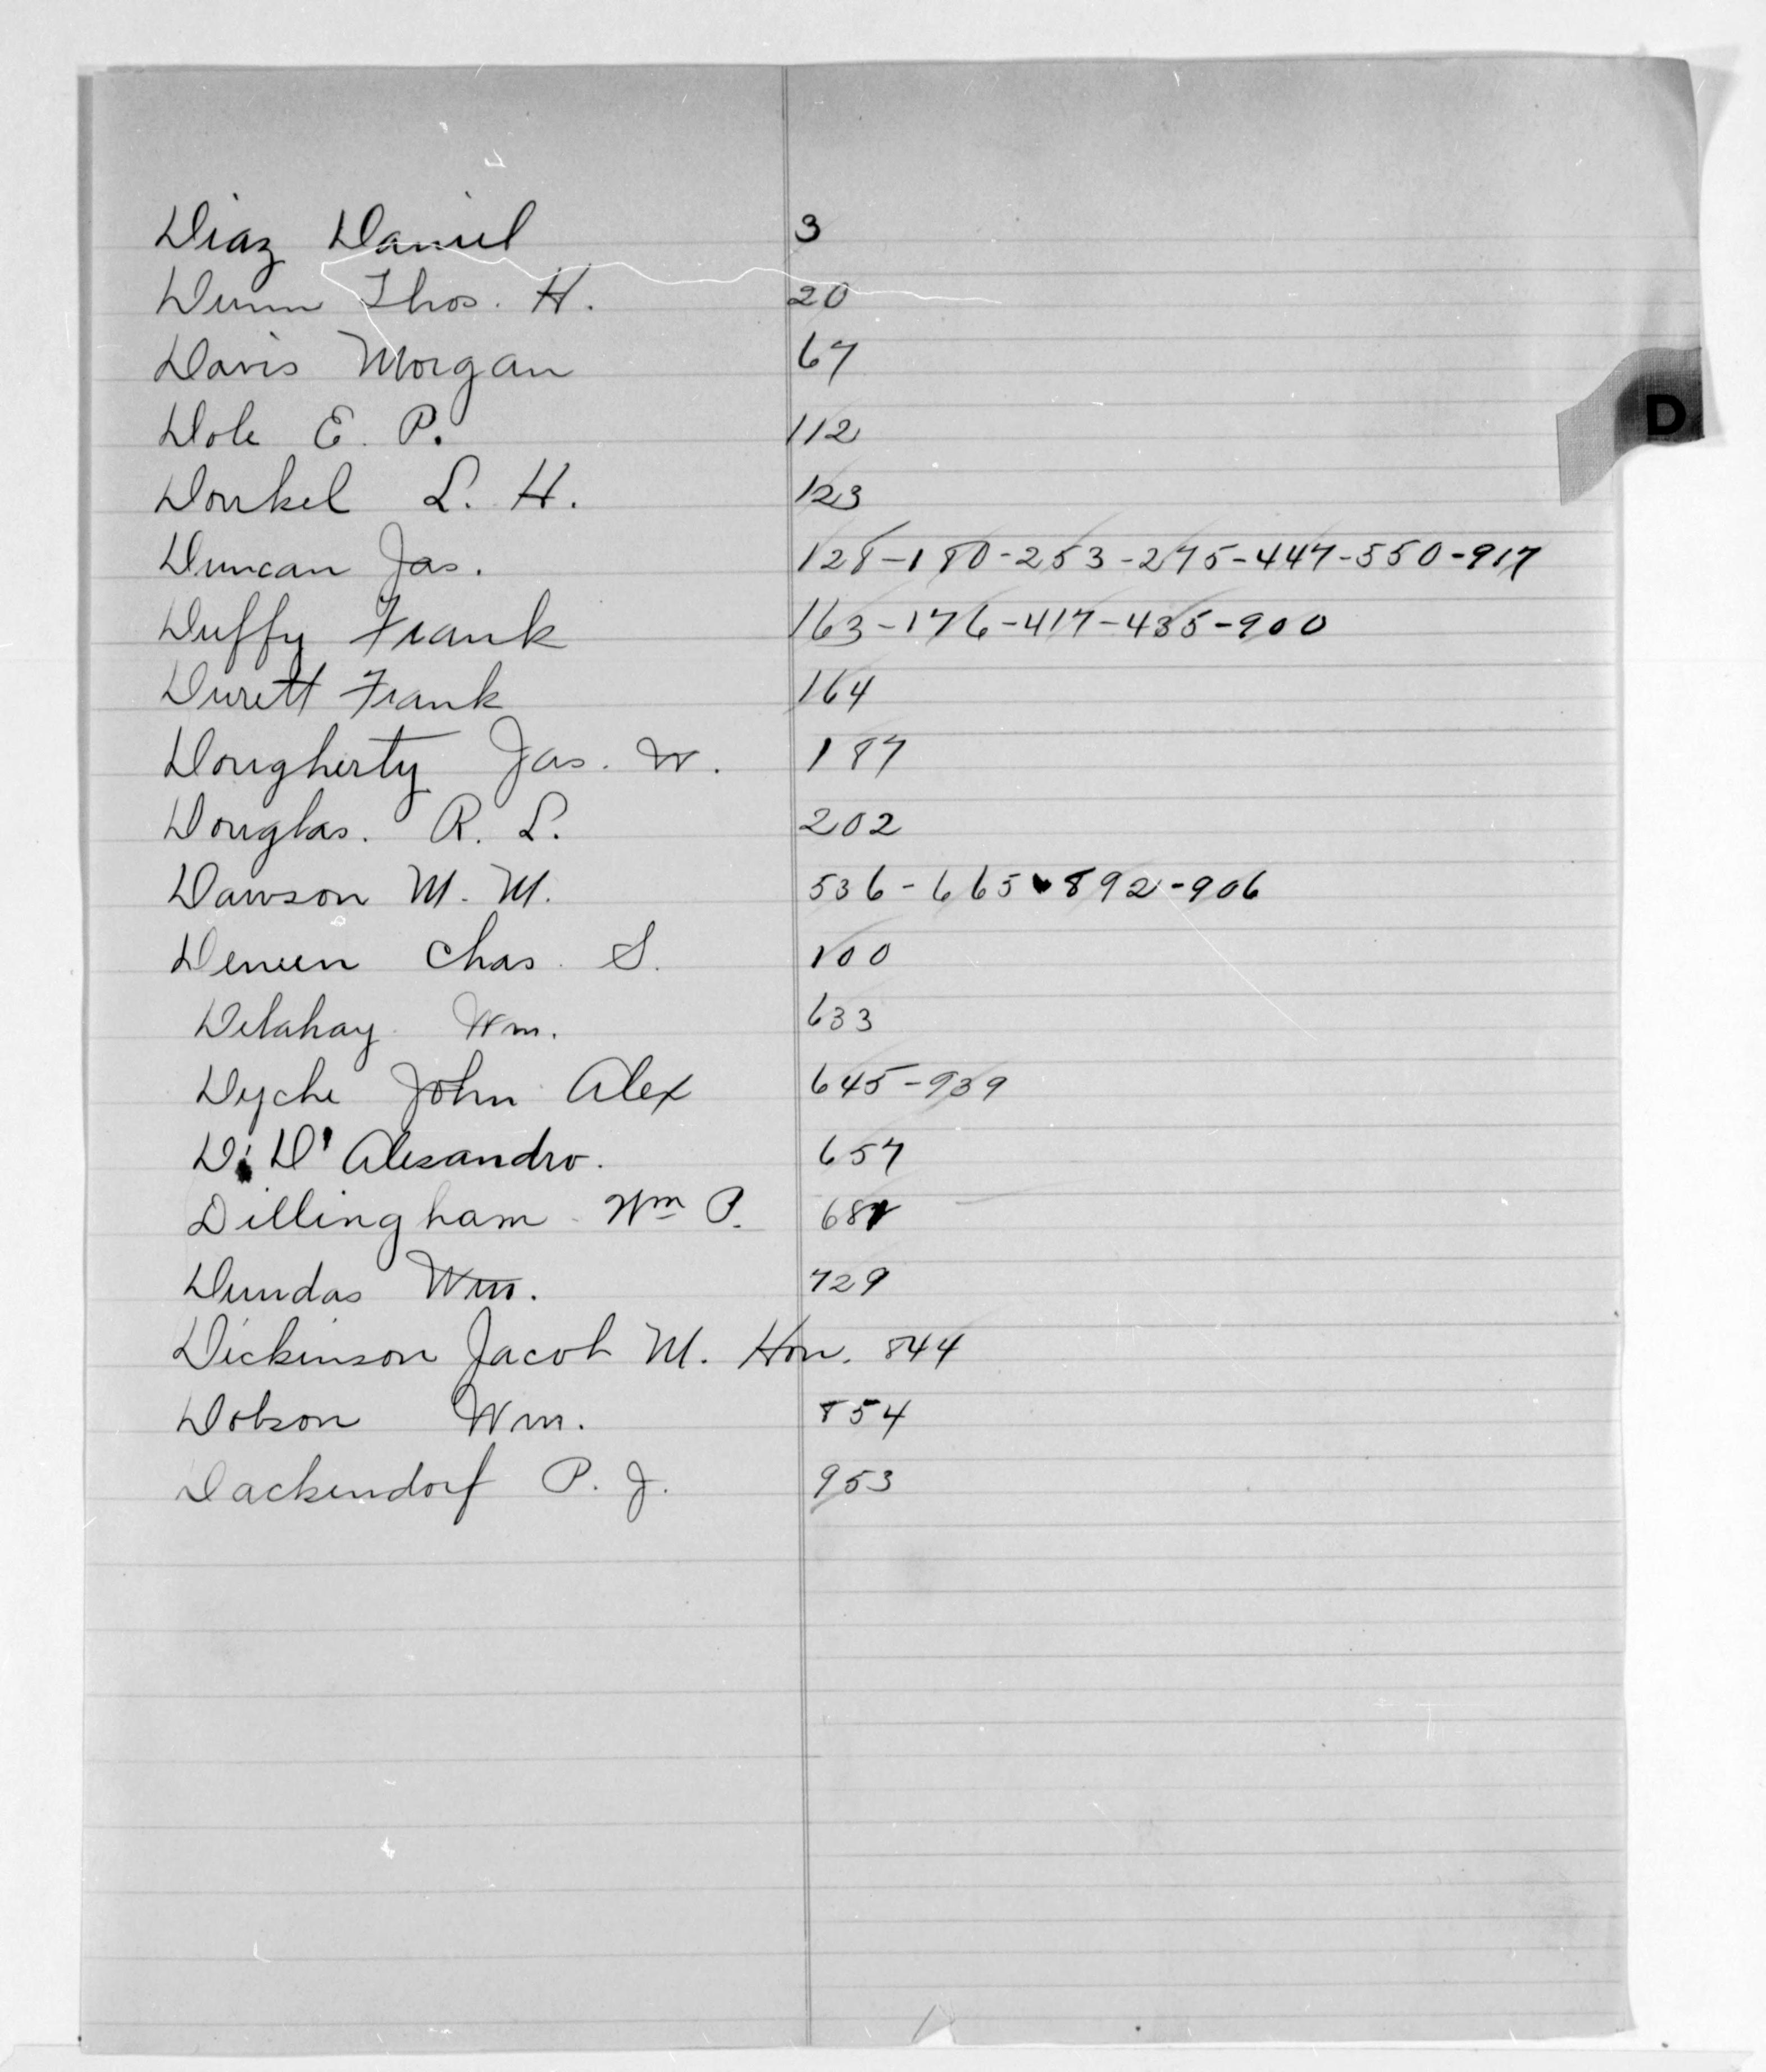 Diaz Daniel 3
Dunn Thos. H. 20
D
Davis Morgan 67
Dole E. P. 112
Donkel L. H. 123
Duncan Jas. 128-180-253-275-447-550-917
Duffy Frank 163-176-417-435-900
Durett Frank 164
Dougherty Jas. W. 187
Douglas. R. L. 202
Dawson M. M. 536-665-892-906
Deneen Chas. S. 100
Delahay Wm. 633
Dyche John Alex 645-939
D. D'Alesandro. 657
Dillingham Wm P.
Dundas Wm. 729
Dickinson Jacob M. Hon. 844
Dobson Wm. 854
Dackendorf P. J. 953